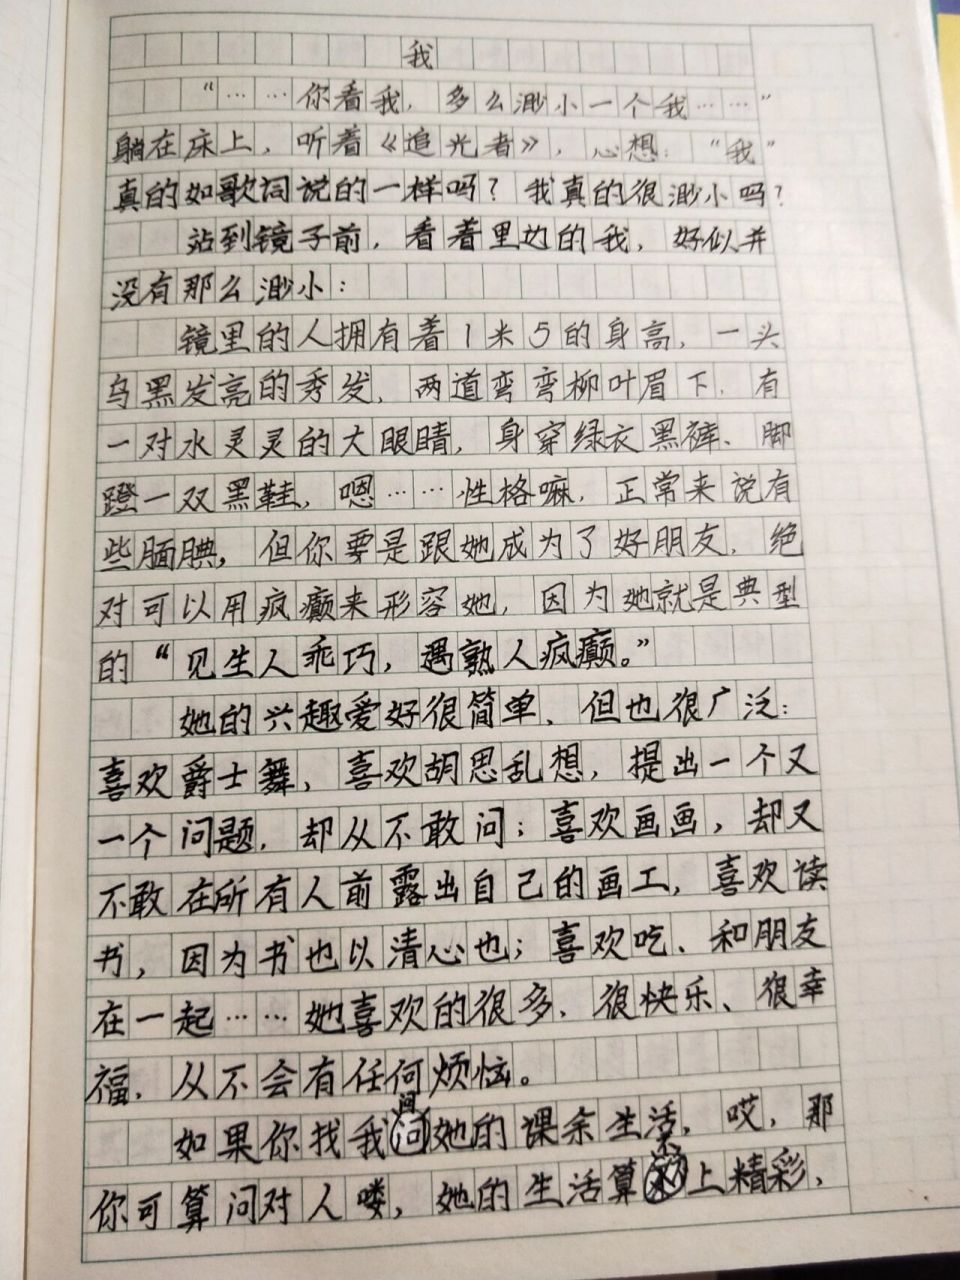 我
“……你看我，多么渺小一个我……”
躺在床上，听着《追光者》，心想：“我”
真的如歌词说的一样吗？我真的很渺小吗？
站到镜子前，看着里边的我，好似并
没有那么渺小：
镜里的人拥有着1米5的身高，一头
乌黑发亮的秀发，两道弯弯柳叶眉下，有
一对水灵灵的大眼睛，身穿绿衣黑裤、脚
蹬一双黑鞋，嗯……性格嘛，正常来说有
些腼腆，但你要是跟她成为了好朋友，绝
对可以用疯癫来形容她，因为她就是典型
的“见生人乖巧，遇熟人疯癫。”
她的兴趣爱好很简单、但也很广泛：
喜欢爵士舞，喜欢胡思乱想，提出一个又
一个问题，却从不敢问；喜欢画画，却又
不敢在所有人前露出自己的画工，喜欢读
书，因为书也以清心也；喜欢吃、和朋友
在一起……她喜欢的很多，很快乐、很幸
福，从不会有任何烦恼。
如果你找我问她的课余生活，哎，那
你可算问对人喽，她的生活算不上精彩，